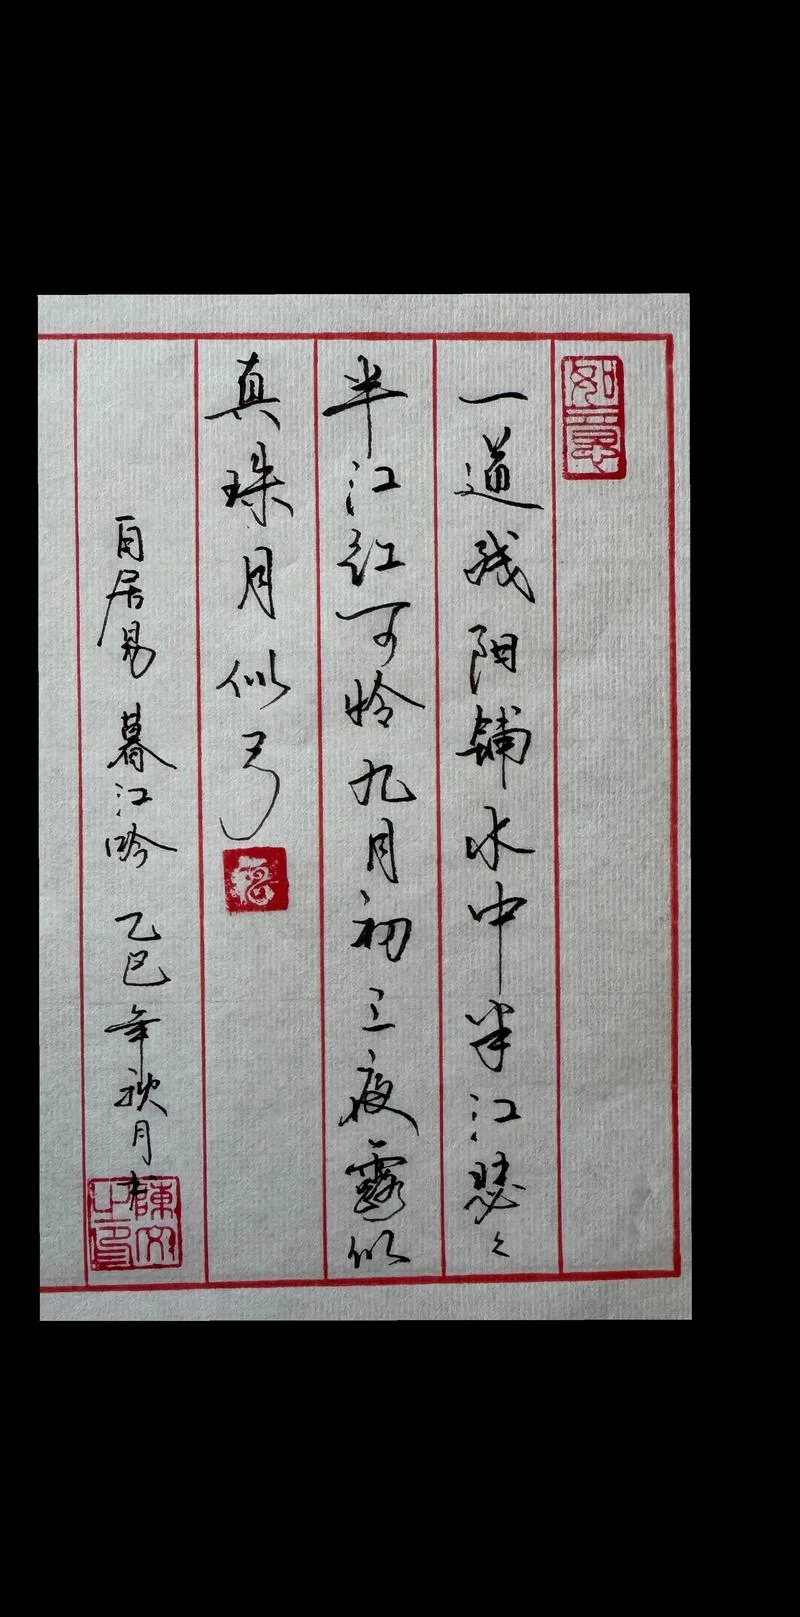 如意
一道残阳铺水中半江瑟々
半江红可怜九月初三夜露似
真珠月似弓
白居易 暮江吟 乙巳年秋月